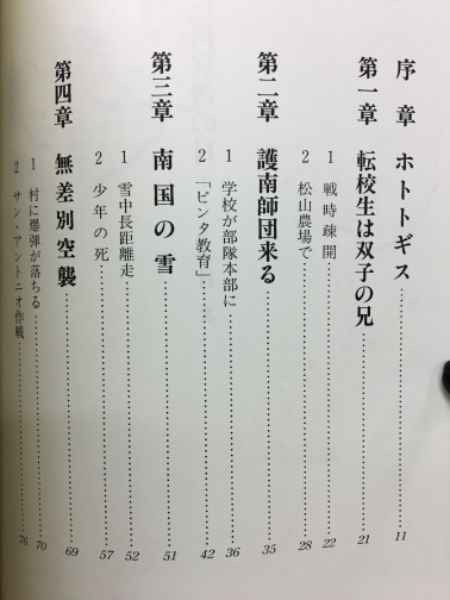 序章 ホトトギス……11
第一章 転校生は双子の兄……21
1 戦時疎開……22
2 松山農場で……28
第二章 護南師団来る……35
1 学校が部隊本部に……36
2 「ビンタ教育」……42
第三章 南国の雪……51
1 雪中長距離走……52
2 少年の死……57
第四章 無差別空襲……69
1 村に爆弾が落ちる……70
2 サン・アントニオ作戦……76